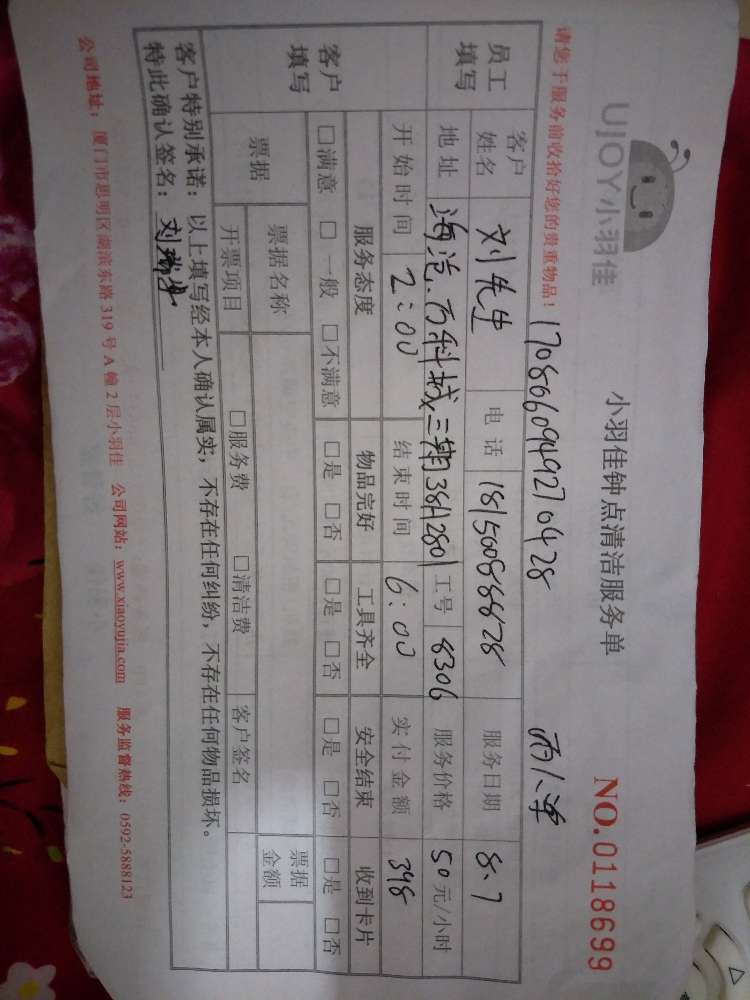 UJOY小羽佳
小羽佳钟点清洁服务单
NO.0118699
请您于服务前收拾好您的贵重物品！ 1708060949270428 两人净
员工填写 客户姓名 刘先生 电话 18150088828 服务日期 8.7
地址 海沧.万科城三期38#12801 工号 8306 服务价格 50元/小时
开始时间 2:00 结束时间 6:00 实付金额 398
客户填写 服务态度 物品完好 工具齐全 安全结束 收到卡片
□满意 □一般 □不满意 □是 □否 □是 □否 □是 □否 □是 □否
票据 票据名称 票据金额
开票项目 □服务费 □清洁费 客户签名
客户特别承诺：以上填写经本人确认属实，不存在任何纠纷，不存在任何物品损坏。
特此确认签名：刘
公司地址：厦门市思明区湖滨东路319号A幢2层小羽佳 公司网站：www.xiaoyujia.com 服务监督热线：0592-5888123